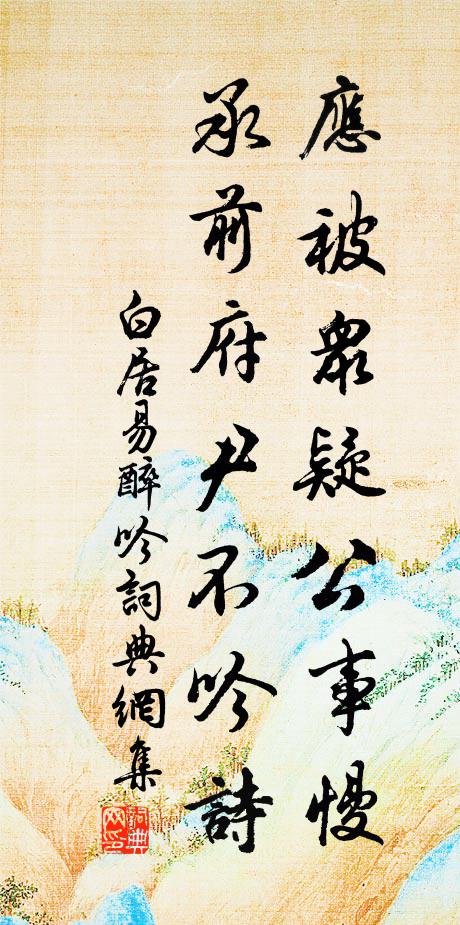 應被眾疑公事慢
承前府尹不吟詩
白居易醉吟詞典網集
詞典網印